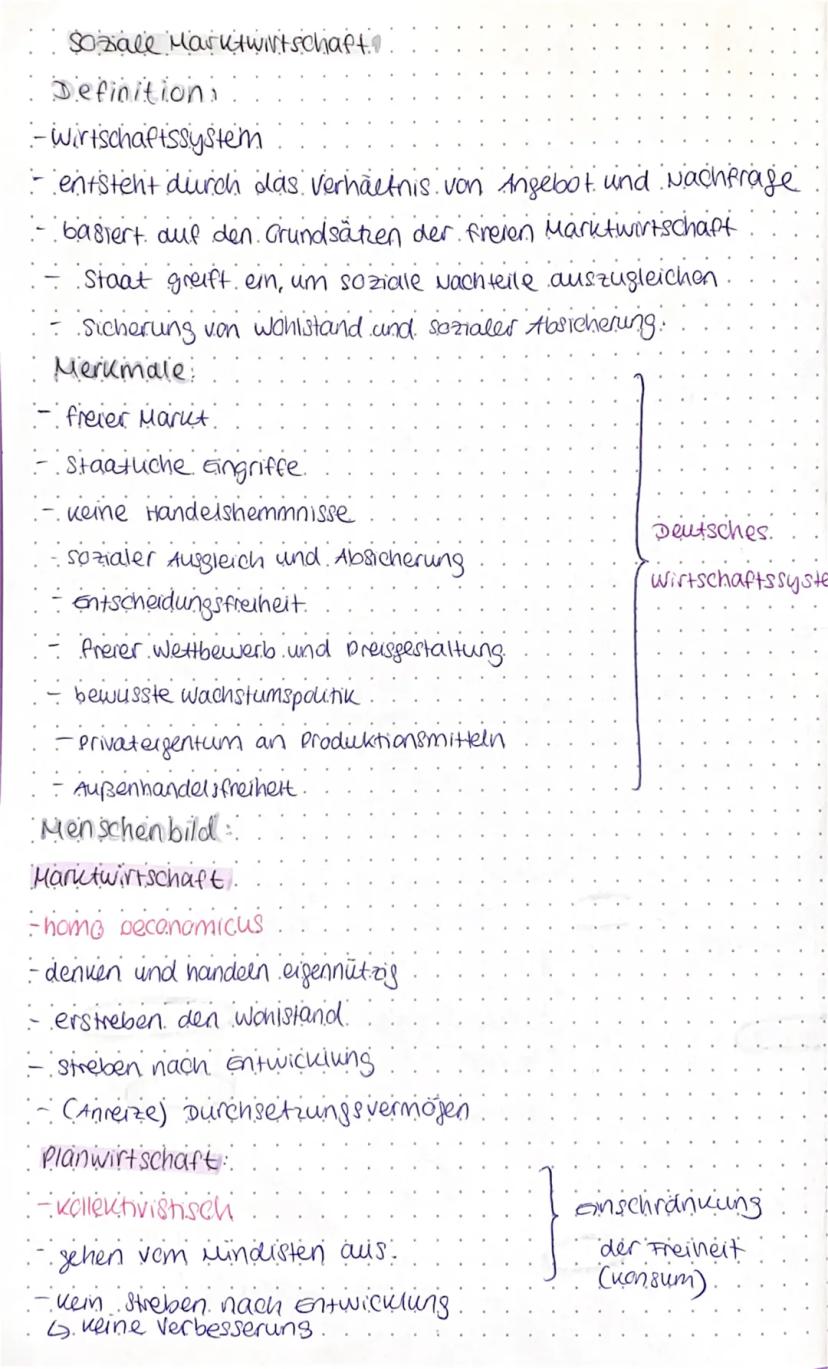 Soziale Marktwirtschaft
Definition:
- Wirtschaftssystem
- entsteht durch das Verhältnis von Angebot und Nachfrage
- basiert auf den Grundsätzen der freien Marktwirtschaft
- Staat greift ein, um soziale Nachteile auszugleichen
- Sicherung von Wohlstand und sozialer Absicherung.
Merkmale:
- freier Markt
- Staatliche Eingriffe
- keine Handelshemmnisse
- sozialer Ausgleich und Absicherung
- Entscheidungsfreiheit
- freier Wettbewerb und Preisgestaltung
- bewusste Wachstumspolitik
- Privateigentum an Produktionsmitteln
- Außenhandelsfreiheit
Deutsches
Wirtschaftssyste
Menschenbild:
Marktwirtschaft
- homo oeconomicus
- denken und handeln eigennützig
- erstreben den Wohlstand
- streben nach Entwicklung
- (Anreize) Durchsetzungsvermögen
Planwirtschaft:
- kollektivistisch
- gehen vom Mindisten aus
- kein Streben nach Entwicklung
↳ keine Verbesserung
Einschränkung
der Freiheit
(Konsum)